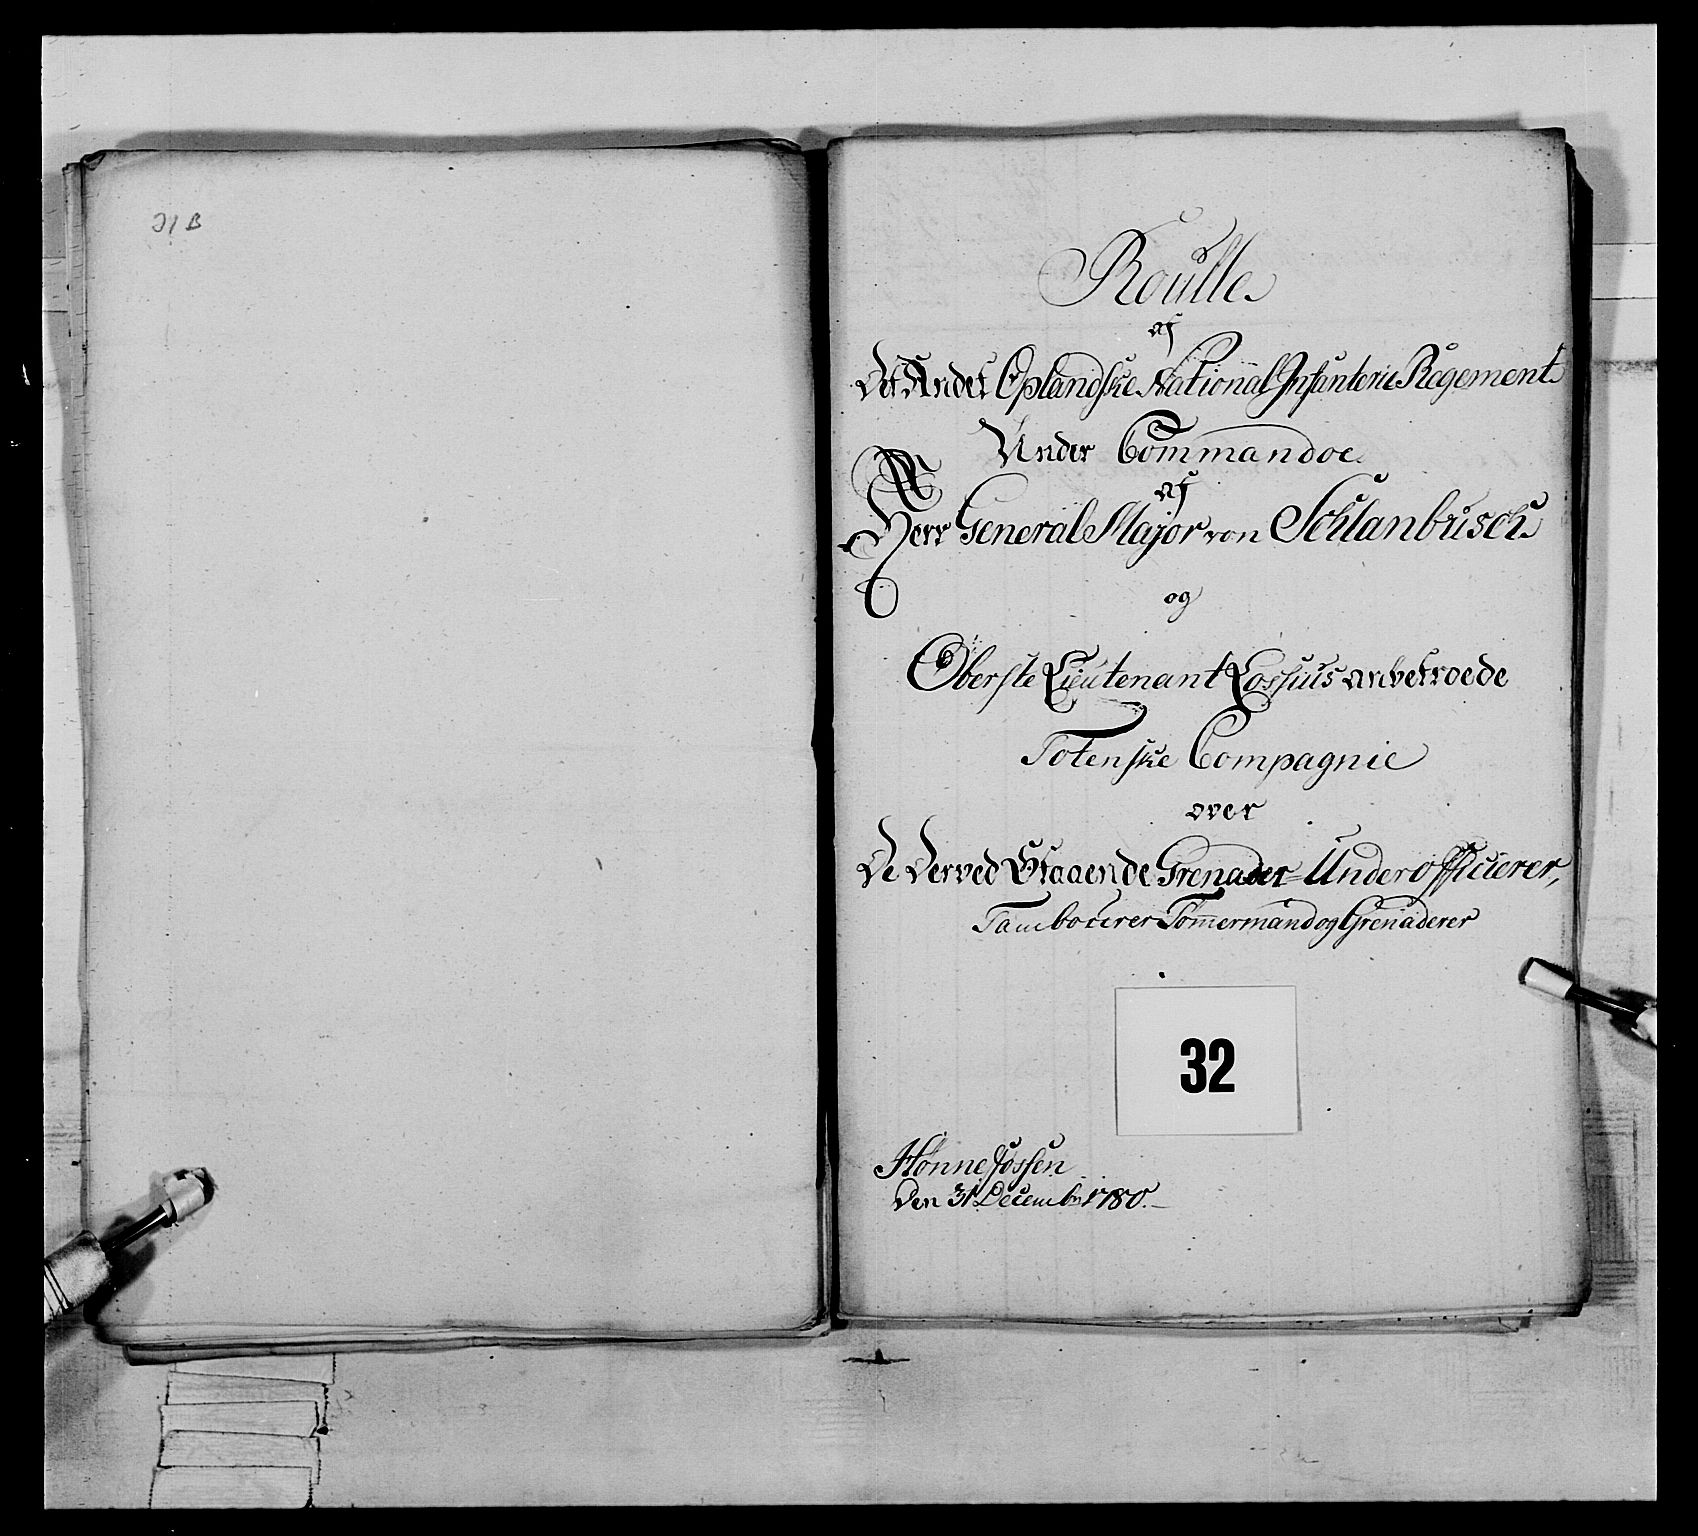 21 B
Roulle
af
Det Andet Oplandske National Infanterie Regement
Under Commandoe
af
Herr General Major von Schlanbusch
og
Oberste Lieutenant Lossius anbetroede
Totenske Compagnie
over
De Derved Staaende Grenader-Underofficierer,
Tambourer Tømmermand og Grenaderer
32
Hønnefossen
Den 31 Decembr 1780.